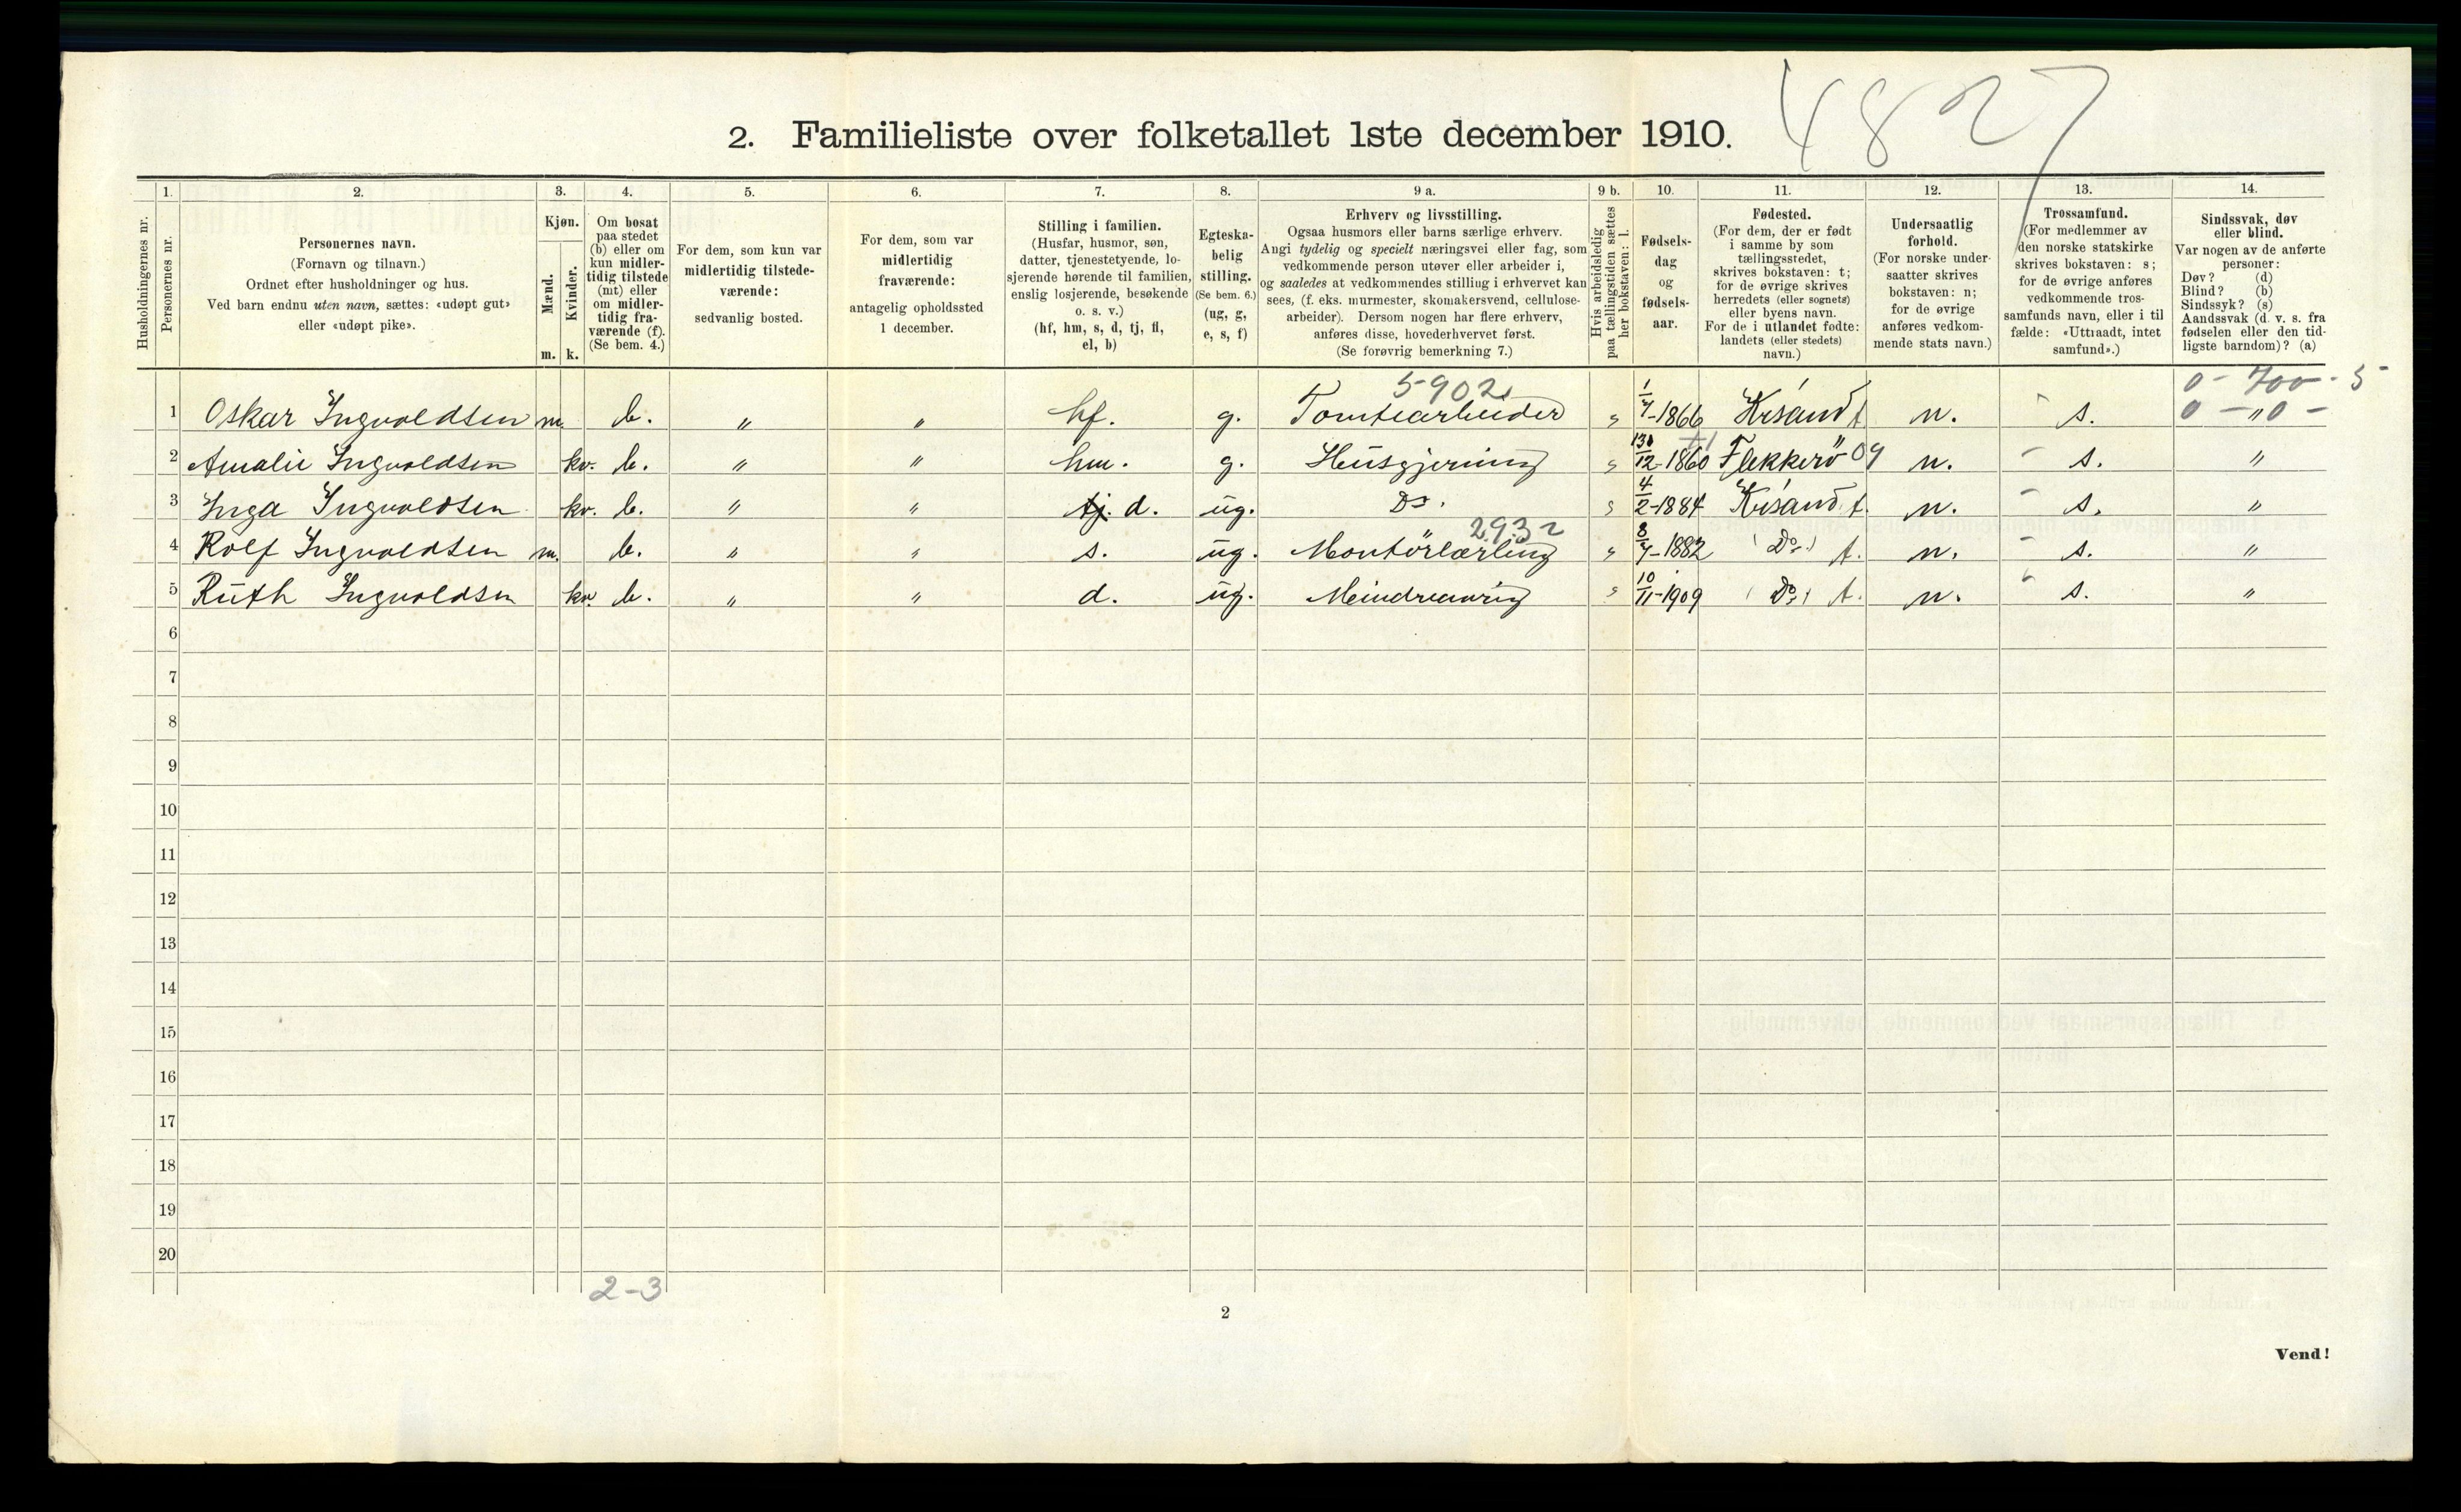 4827
2. Familieliste over folketallet 1ste december 1910.
1. 2. 3. 4. 5. 6. 7. 8. 9 a. 9 b. 10. 11. 12. 13. 14.
Husholdningernes nr.
Personernes nr.
Personernes navn.
(Fornavn og tilnavn.)
Ordnet efter husholdninger og hus.
Ved barn endnu uten navn, sættes: «udøpt gut»
eller «udøpt pike».
Kjøn.
Mænd.
Kvinder.
m. k.
Om bosat
paa stedet
(b) eller om
kun midler-
tidig tilstede
(mt) eller
om midler-
tidig fra-
værende (f).
(Se bem. 4.)
For dem, som kun var
midlertidig tilstede-
værende:
sedvanlig bosted.
For dem, som var
midlertidig
fraværende:
antagelig opholdssted
1 december.
Stilling i familien.
(Husfar, husmor, søn,
datter, tjenestetyende, lo-
sjerende hørende til familien,
enslig losjerende, besøkende
o. s. v.)
(hf, hm, s, d, tj, fl,
el, b)
Egteska-
belig
stilling.
(Se bem. 6.)
(ug, g,
e, s, f)
Erhverv og livsstilling.
Ogsaa husmors eller barns særlige erhverv.
Angi tydelig og specielt næringsvei eller fag, som
vedkommende person utøver eller arbeider i,
og saaledes at vedkommendes stilling i erhvervet kan
sees, (f. eks. murmester, skomakersvend, cellulose-
arbeider). Dersom nogen har flere erhverv,
anføres disse, hovederhvervet først.
(Se forøvrig bemerkning 7.)
Hvis arbeidsledig
paa tællingstiden sættes
her bokstaven: l.
Fødsels-
dag
og
fødsels-
aar.
Fødested.
(For dem, der er født
i samme by som
tællingsstedet,
skrives bokstaven: t;
for de øvrige skrives
herredets (eller sognets)
eller byens navn.
For de i utlandet fødte:
landets (eller stedets)
navn.)
Undersaatlig
forhold.
(For norske under-
saatter skrives
bokstaven: n;
for de øvrige
anføres vedkom-
mende stats navn.)
Trossamfund.
(For medlemmer av
den norske statskirke
skrives bokstaven: s;
for de øvrige anføres
vedkommende tros-
samfunds navn, eller i til
fælde: «Uttraadt, intet
samfund».)
Sindssvak, døv
eller blind.
Var nogen av de anførte
personer:
Døv? (d)
Blind? (b)
Sindssyk? (s)
Aandssvak (d. v. s. fra
fødselen eller den tid-
ligste barndom)? (a)
5902 0 - 700 - 5
1 Oskar Ingvoldsen m. b. " " hf. g. Tomtearbeider " 1/7-1866 Krsand t n. s. 0 - "0 -
2 Amalie Ingvoldsen kv. b. " " hm. g. Husgjerning " 13/12-1860 Flekkerö 09 n. s. "
3 Inga Ingvoldsen kv. b. " " tj. d. ug. Do. " 4/2-1884 Krsand t. n. s. "
2932
4 Rolf Ingvoldsen m. b. " " s. ug. Montörlærling " 8/7-1882 Do. t. n. s. "
5 Ruth Ingvoldsen kv. b. " " d. ug. " 10/11-1909 Do. t. n. s. "
6
7
8
9
10
11
12
13
14
15
16
17
18
19
20
2-3
2
Vend!